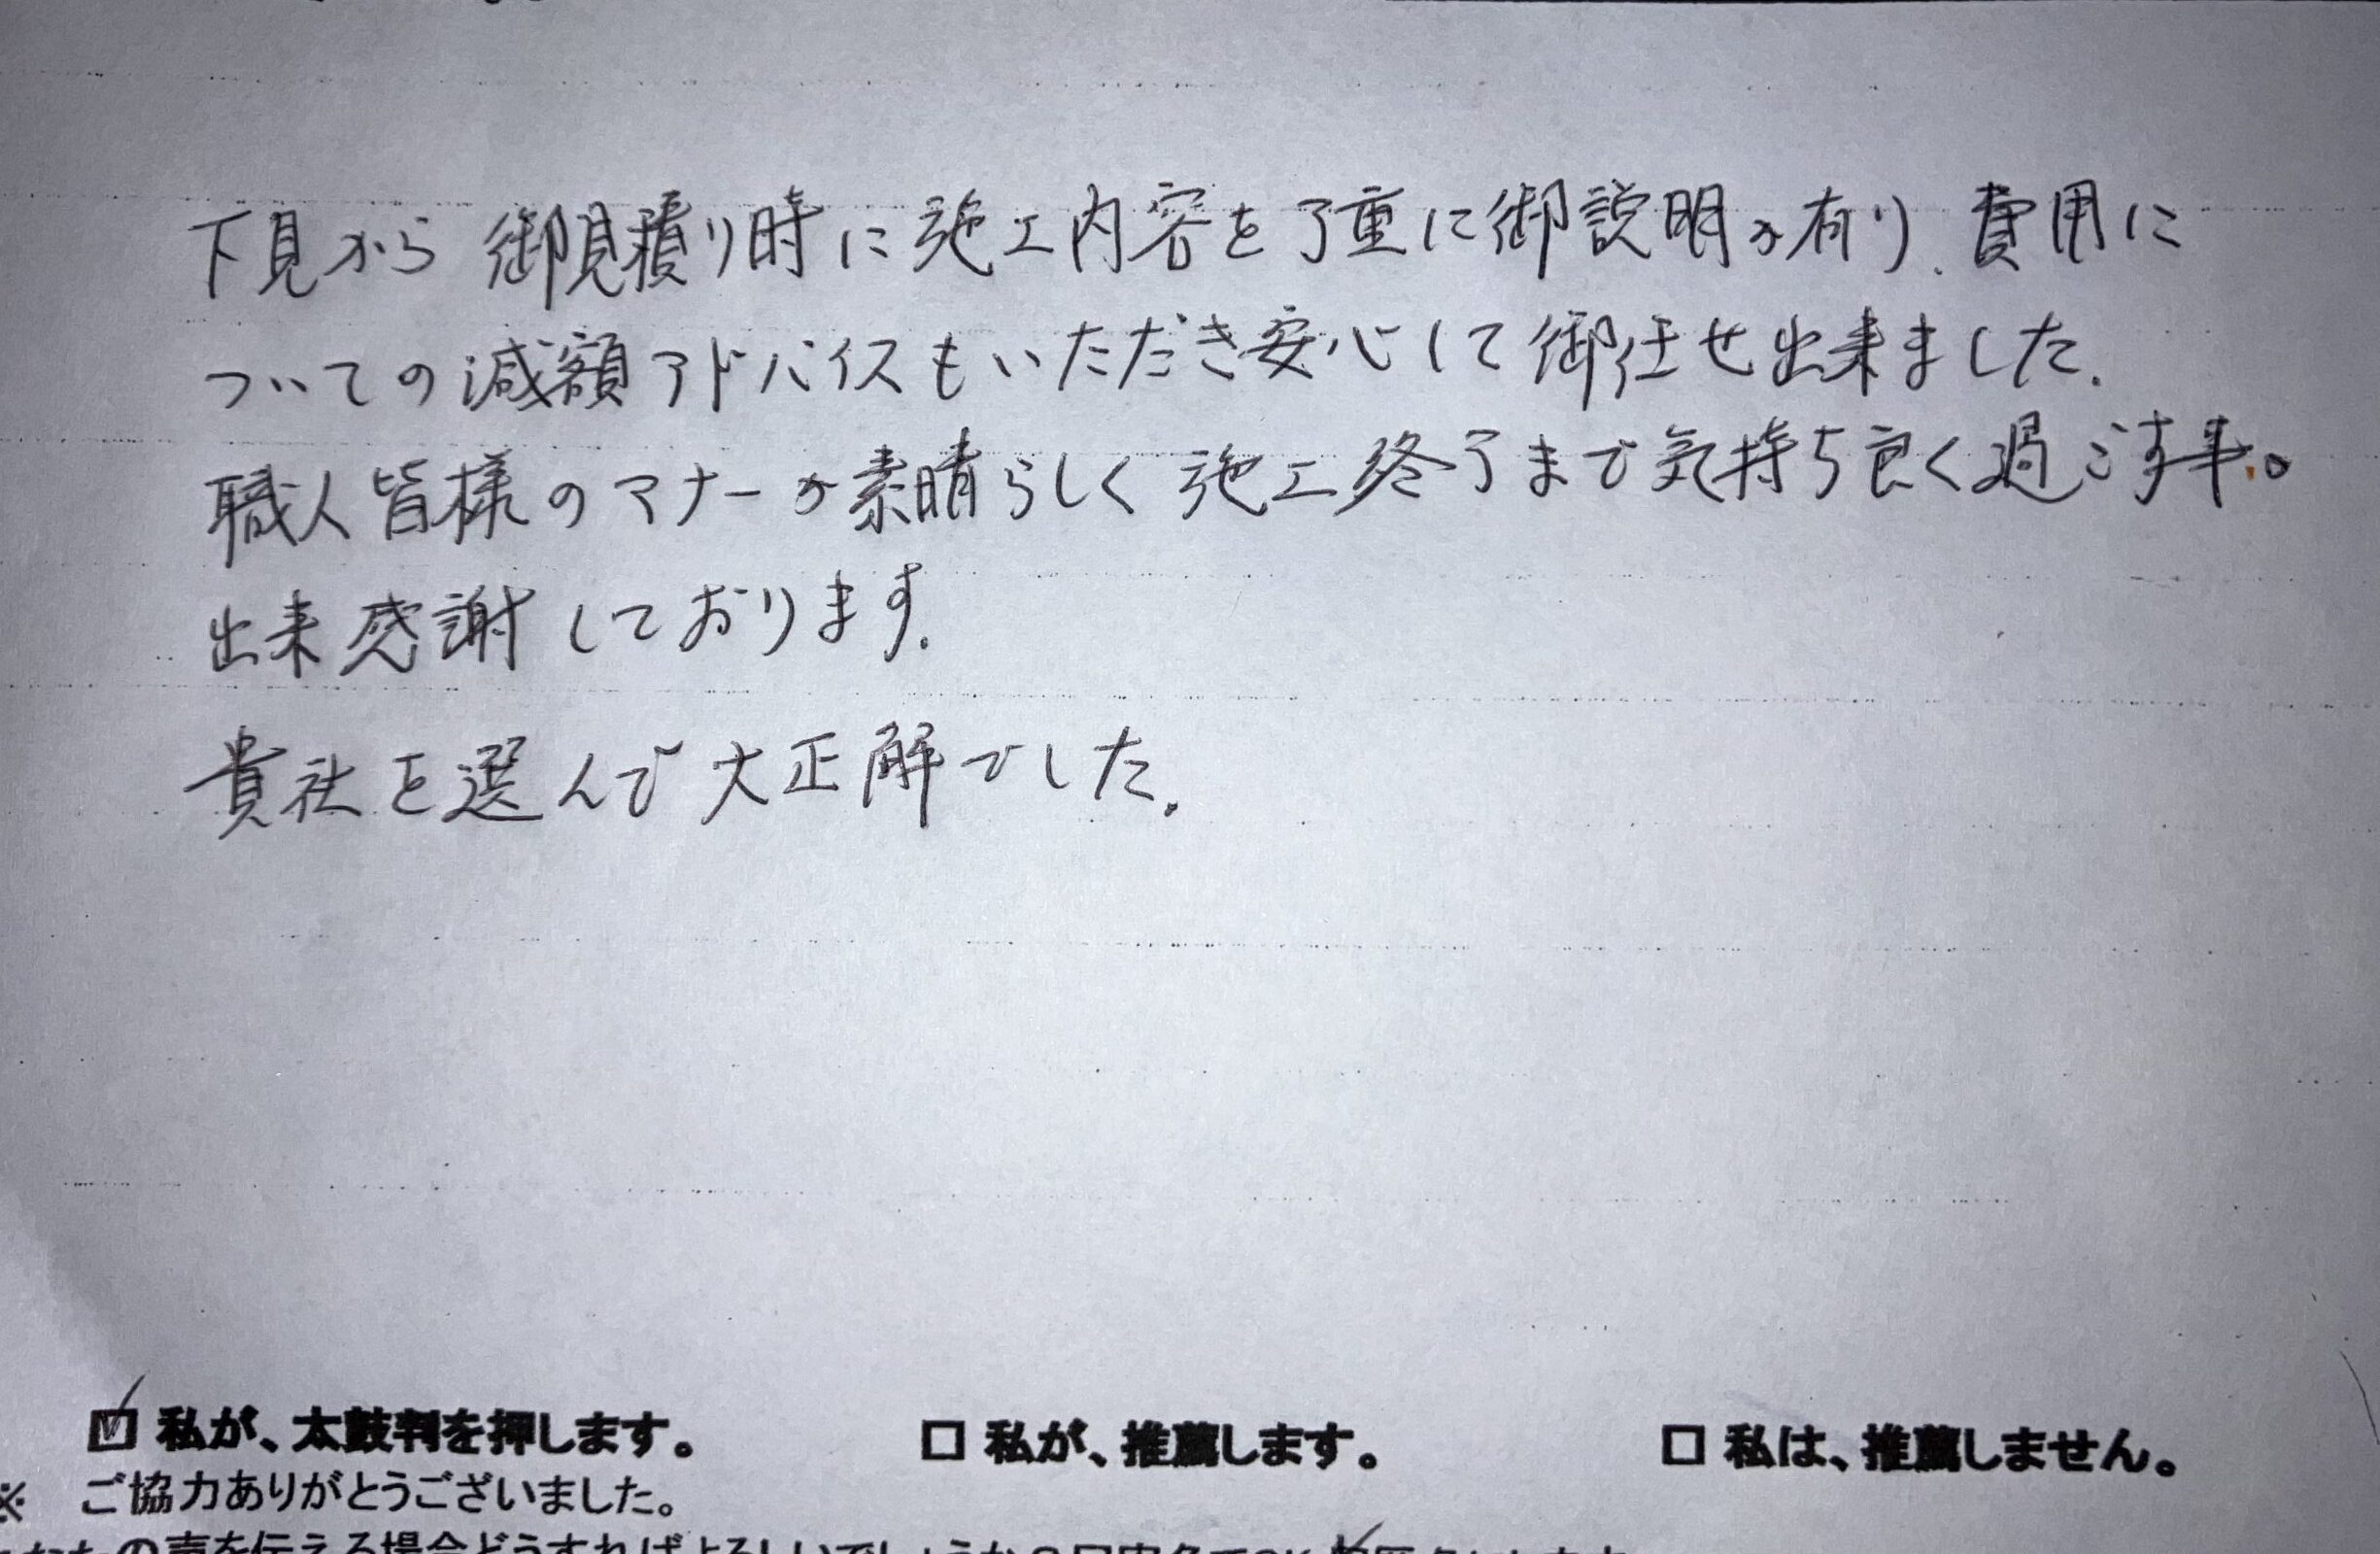 下見から御見積り時に施工内容を丁重に御説明が有り、費用に
ついての減額アドバイスもいただき安心して御任せ出来ました。
職人皆様のマナーが素晴らしく施工終了まで気持ち良く過ごす事。
出来感謝しております。
貴社を選んで大正解でした。
☑ 私が、太鼓判を押します。 □ 私が、推薦します。 □ 私は、推薦しません。
※ ご協力ありがとうございました。
の声を伝える場合どうすればよろしいでしょうか？